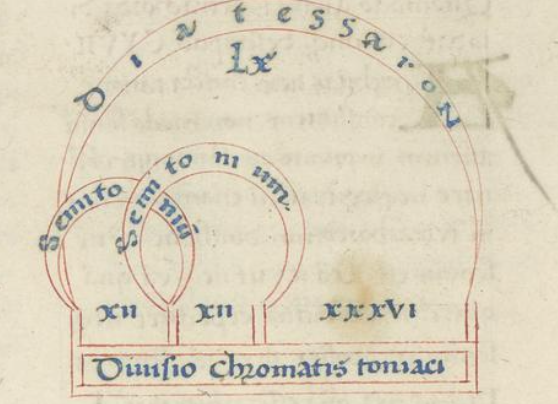 Diatessaron
Lx
Semitonium
Semitonium.
xii xii xxxvi
Divisio chromatis toniaci